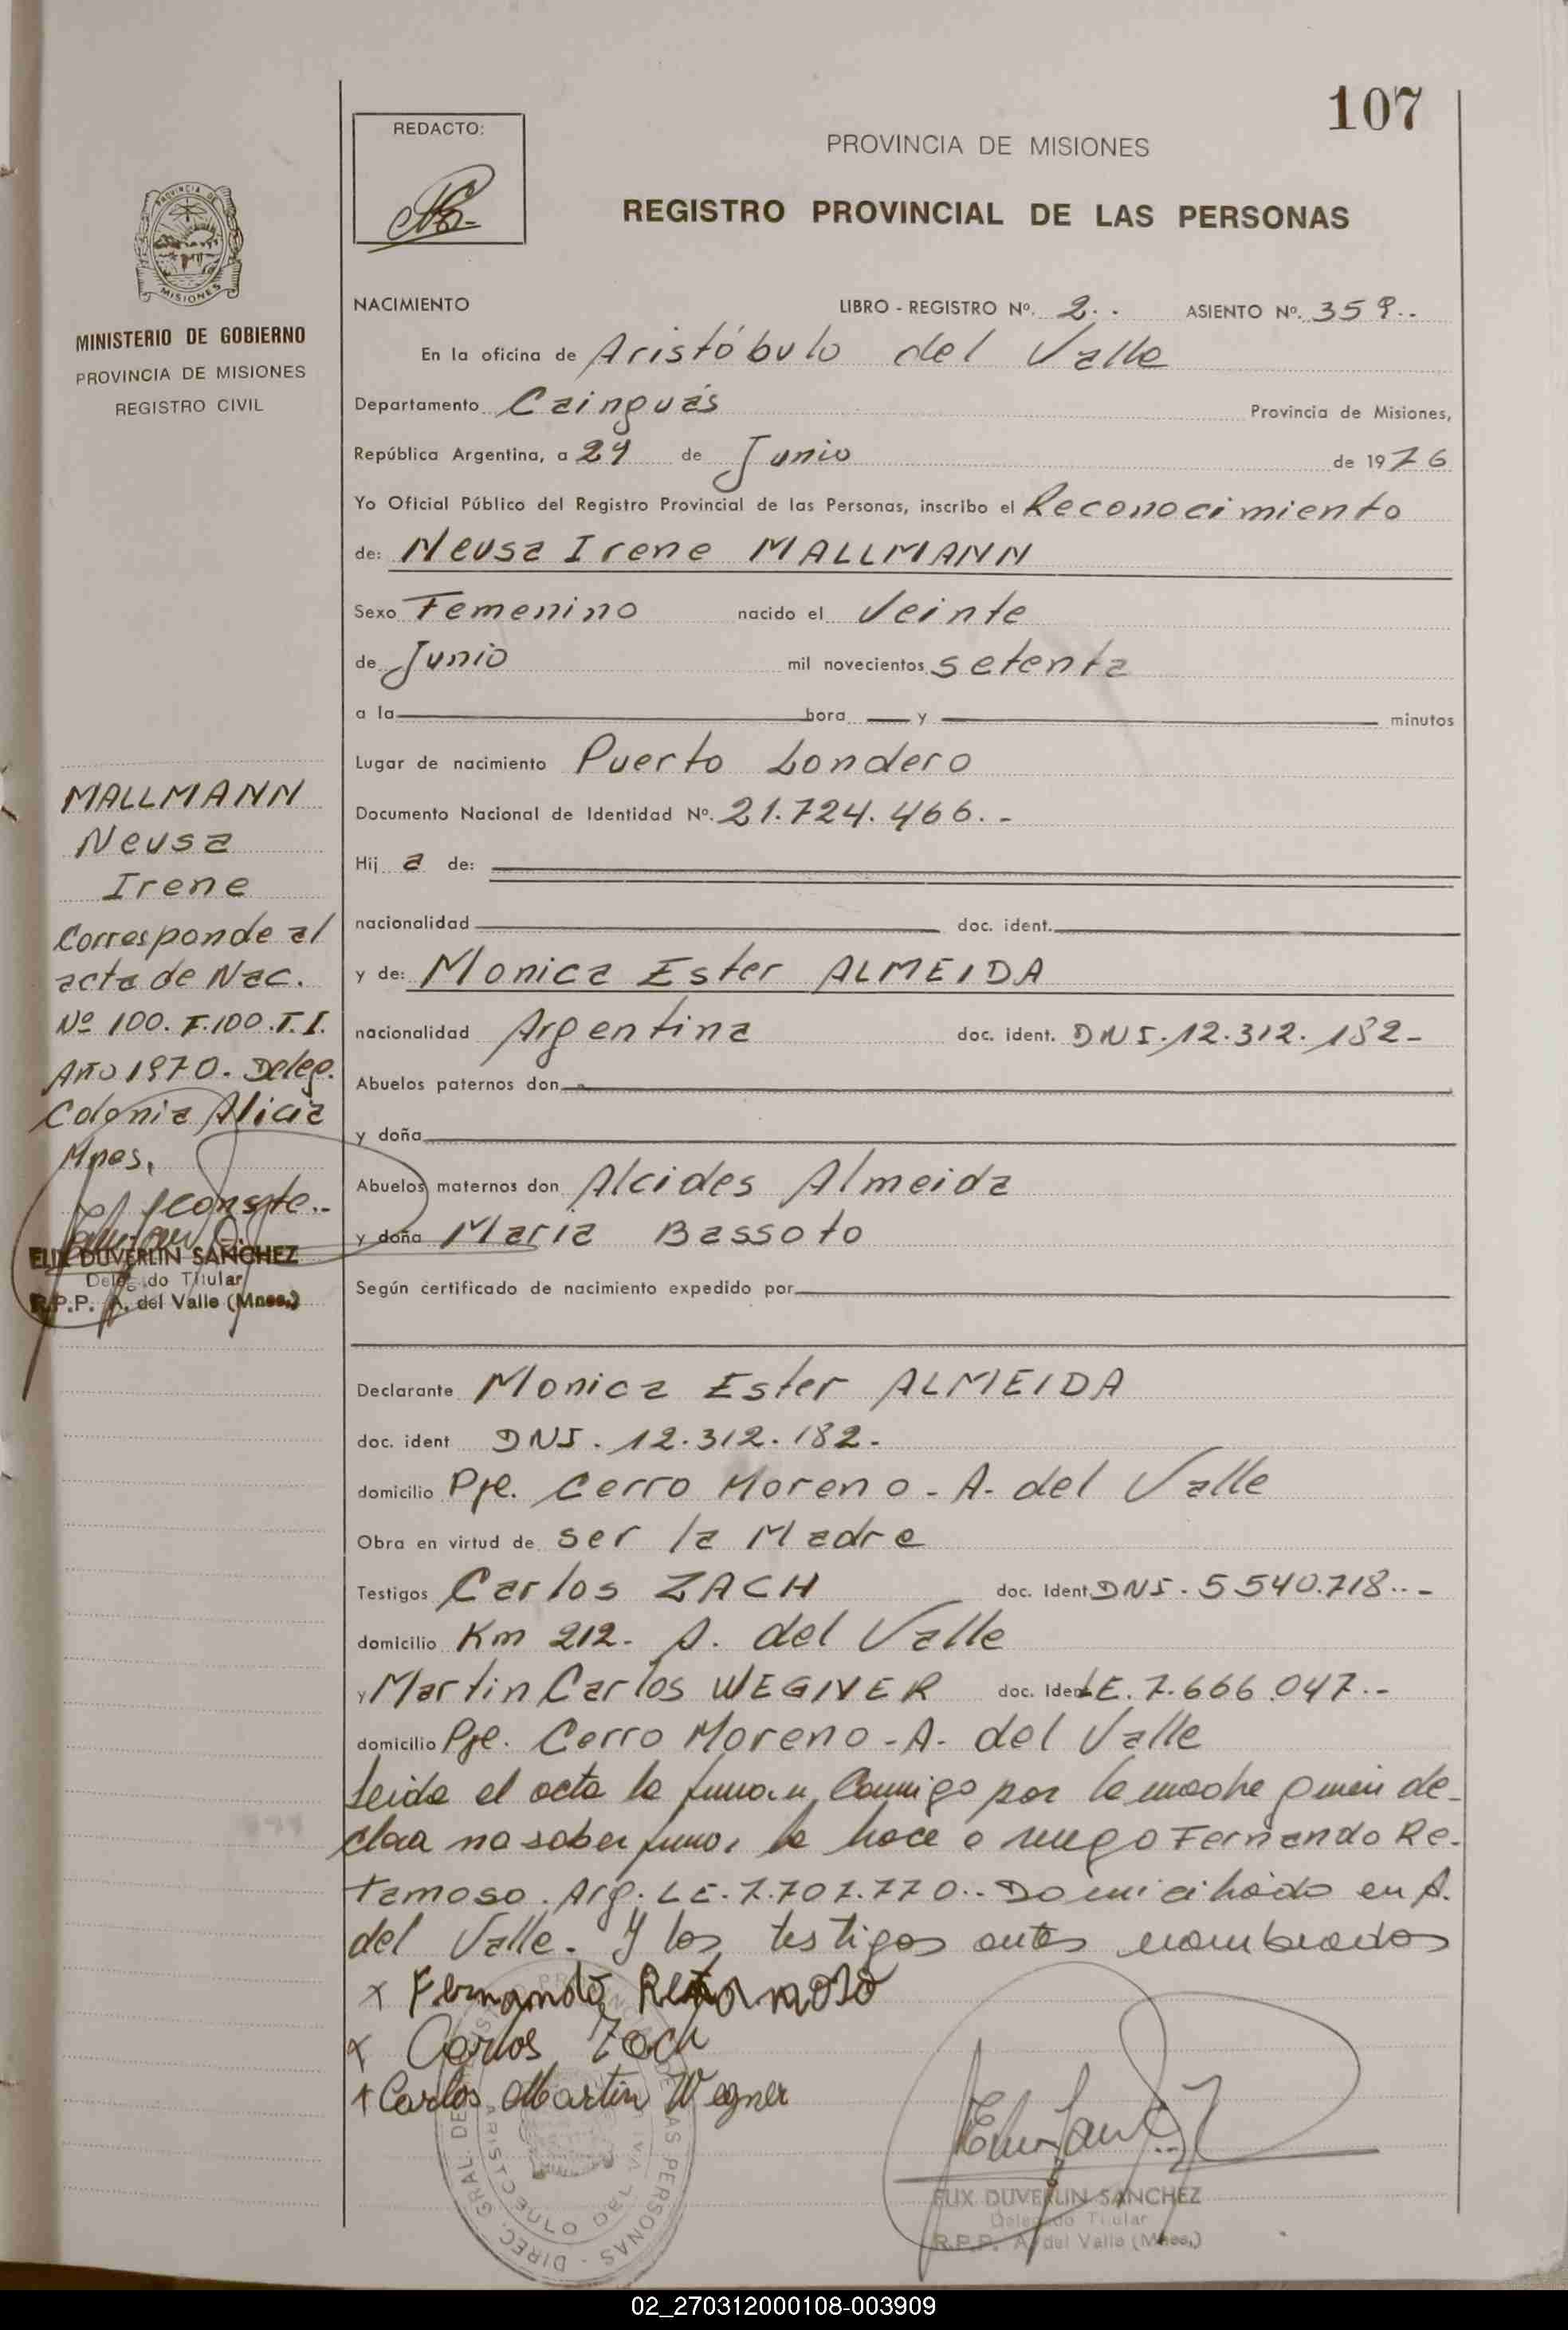 107
REDACTO:
PROVINCIA DE MISIONES
REGISTRO PROVINCIAL DE LAS PERSONAS
PROVINCIA DE
MISIONES
MINISTERIO DE GOBIERNO
PROVINCIA DE MISIONES
REGISTRO CIVIL
NACIMIENTO LIBRO - REGISTRO Nº. 2.. ASIENTO Nº. 359..
En la oficina de Aristóbulo del Valle
Departamento Cainguás Provincia de Misiones,
República Argentina, a 29 de Junio de 1976
Yo Oficial Público del Registro Provincial de las Personas, inscribo el Reconocimiento
de: Neusa Irene MALLMANN
Sexo Femenino nacido el Veinte
de Junio mil novecientos setenta
a la hora y minutos
Lugar de nacimiento Puerto Londero
Documento Nacional de Identidad Nº. 21.724.466.-
Hij a de:
nacionalidad doc. ident.
y de: Monica Ester ALMEIDA
nacionalidad Argentina doc. ident. DNI. 12.312.182-
Abuelos paternos don
y doña
Abuelos maternos don Alcides Almeida
y doña Maria Bassoto
Según certificado de nacimiento expedido por
MALLMANN
Neusa
Irene
Corresponde al
acta de Nac.
Nº 100. F.100.T.I.
Año 1970. Deleg.
Colonia Alicia
Mnes.
Conste.-
ELIX DUVERLIN SANCHEZ
Delegado Titular
R.P.P. A. del Valle (Mnes.)
Declarante Monica Ester ALMEIDA
doc. ident DNI. 12.312.182.
domicilio Pje. Cerro Moreno - A. del Valle
Obra en virtud de ser la Madre
Testigos Carlos ZACH doc. Ident. DNI. 5540.718..-
domicilio Km 212- A. del Valle
y Martin Carlos WEGNER doc. Ident LE. 7.666.047.-
domicilio Pje. Cerro Moreno - A. del Valle
Leida el acta la firman conmigo por la madre quien de-
clara no saber firmar lo hace a ruego Fernando Re-
tamoso. Arg. LE. 7.707.770.. Domiciliado en A.
del Valle. Y los testigos antes nombrados
x Fernando Retamoso
x Carlos Zach
x Carlos Martin Wegner
DIREC. GRAL. DE PERSONAS
ARISTOBULO DEL VALLE
ELIX DUVERLIN SANCHEZ
Delegado Titular
R.P.P. A. del Valle (Mnes.)
02_270312000108-003909